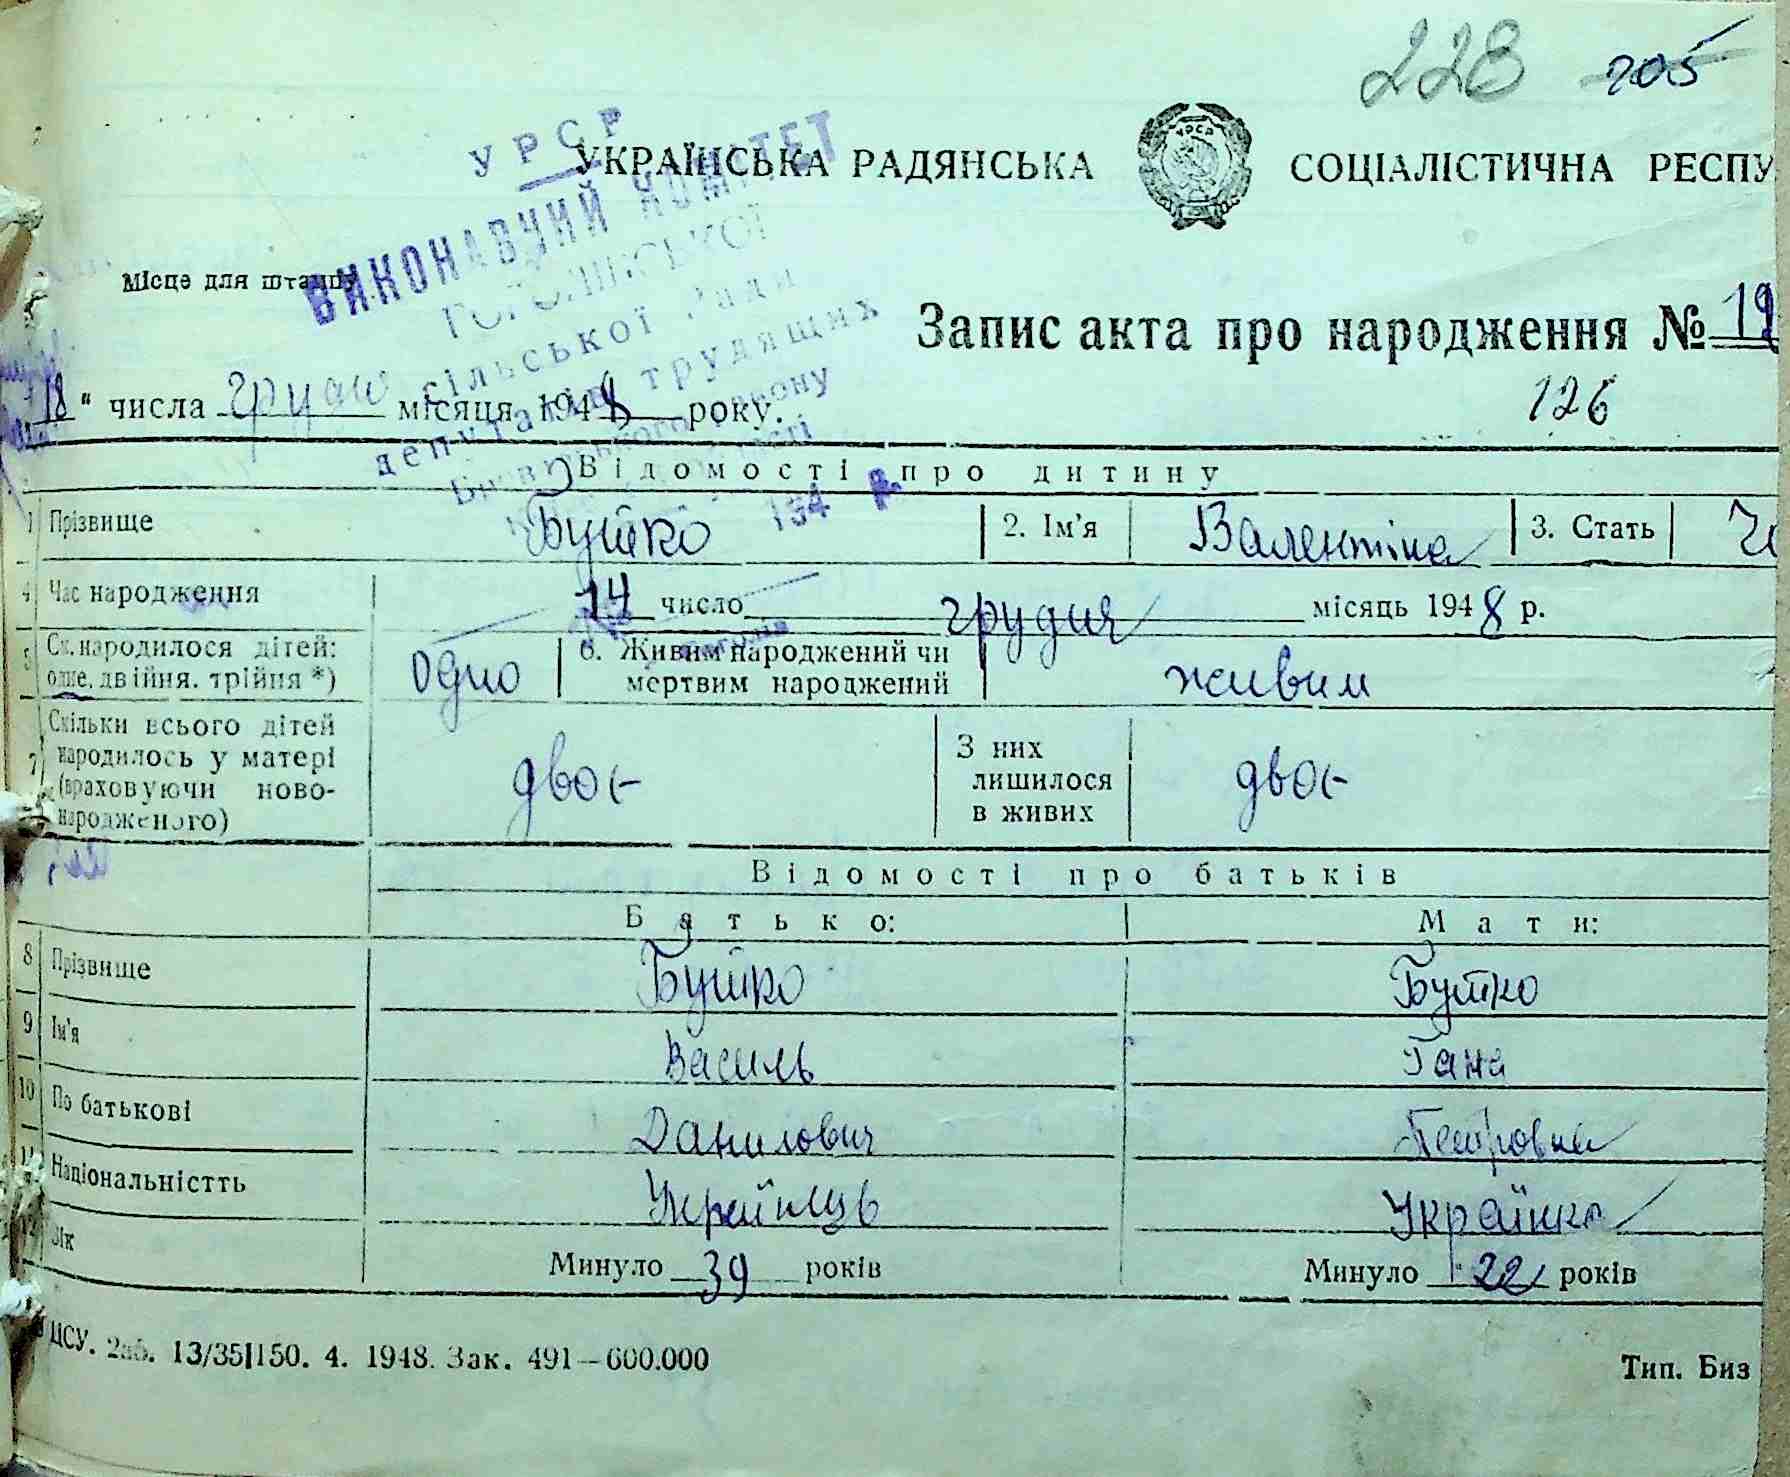 228 205
УРСР
УКРАЇНСЬКА РАДЯНСЬКА УРСР СОЦІАЛІСТИЧНА РЕСПУ
ВИКОНАВЧИЙ КОМІТЕТ
Місце для штампу
сільської Ради
депутатів трудящих
Запис акта про народження № 19
18 " числа грудня місяця 1948 року.
126
Відомості про дитину
194 р.
1 Прізвище Бутко 2. Ім'я Валентина 3. Стать
4 Час народження 14 число грудня місяць 1948 р.
5 Ск. народилося дітей: одне, двійня, трійня *) одно 6. Живим народжений чи мертвим народжений живим
7 Скільки всього дітей народилось у матері (враховуючи новонародженого) двоє З них лишилося в живих двоє
Відомості про батьків
Батько: Мати:
8 Прізвище Бутко Бутко
9 Ім'я Василь Гана
10 По батькові Данилович Петровна
11 Національністть Українець Українка
12 Вік Минуло 39 років Минуло 22 років
ЦСУ. Заб. 13/35|150. 4. 1948. Зак. 491—600.000 Тип. Биз